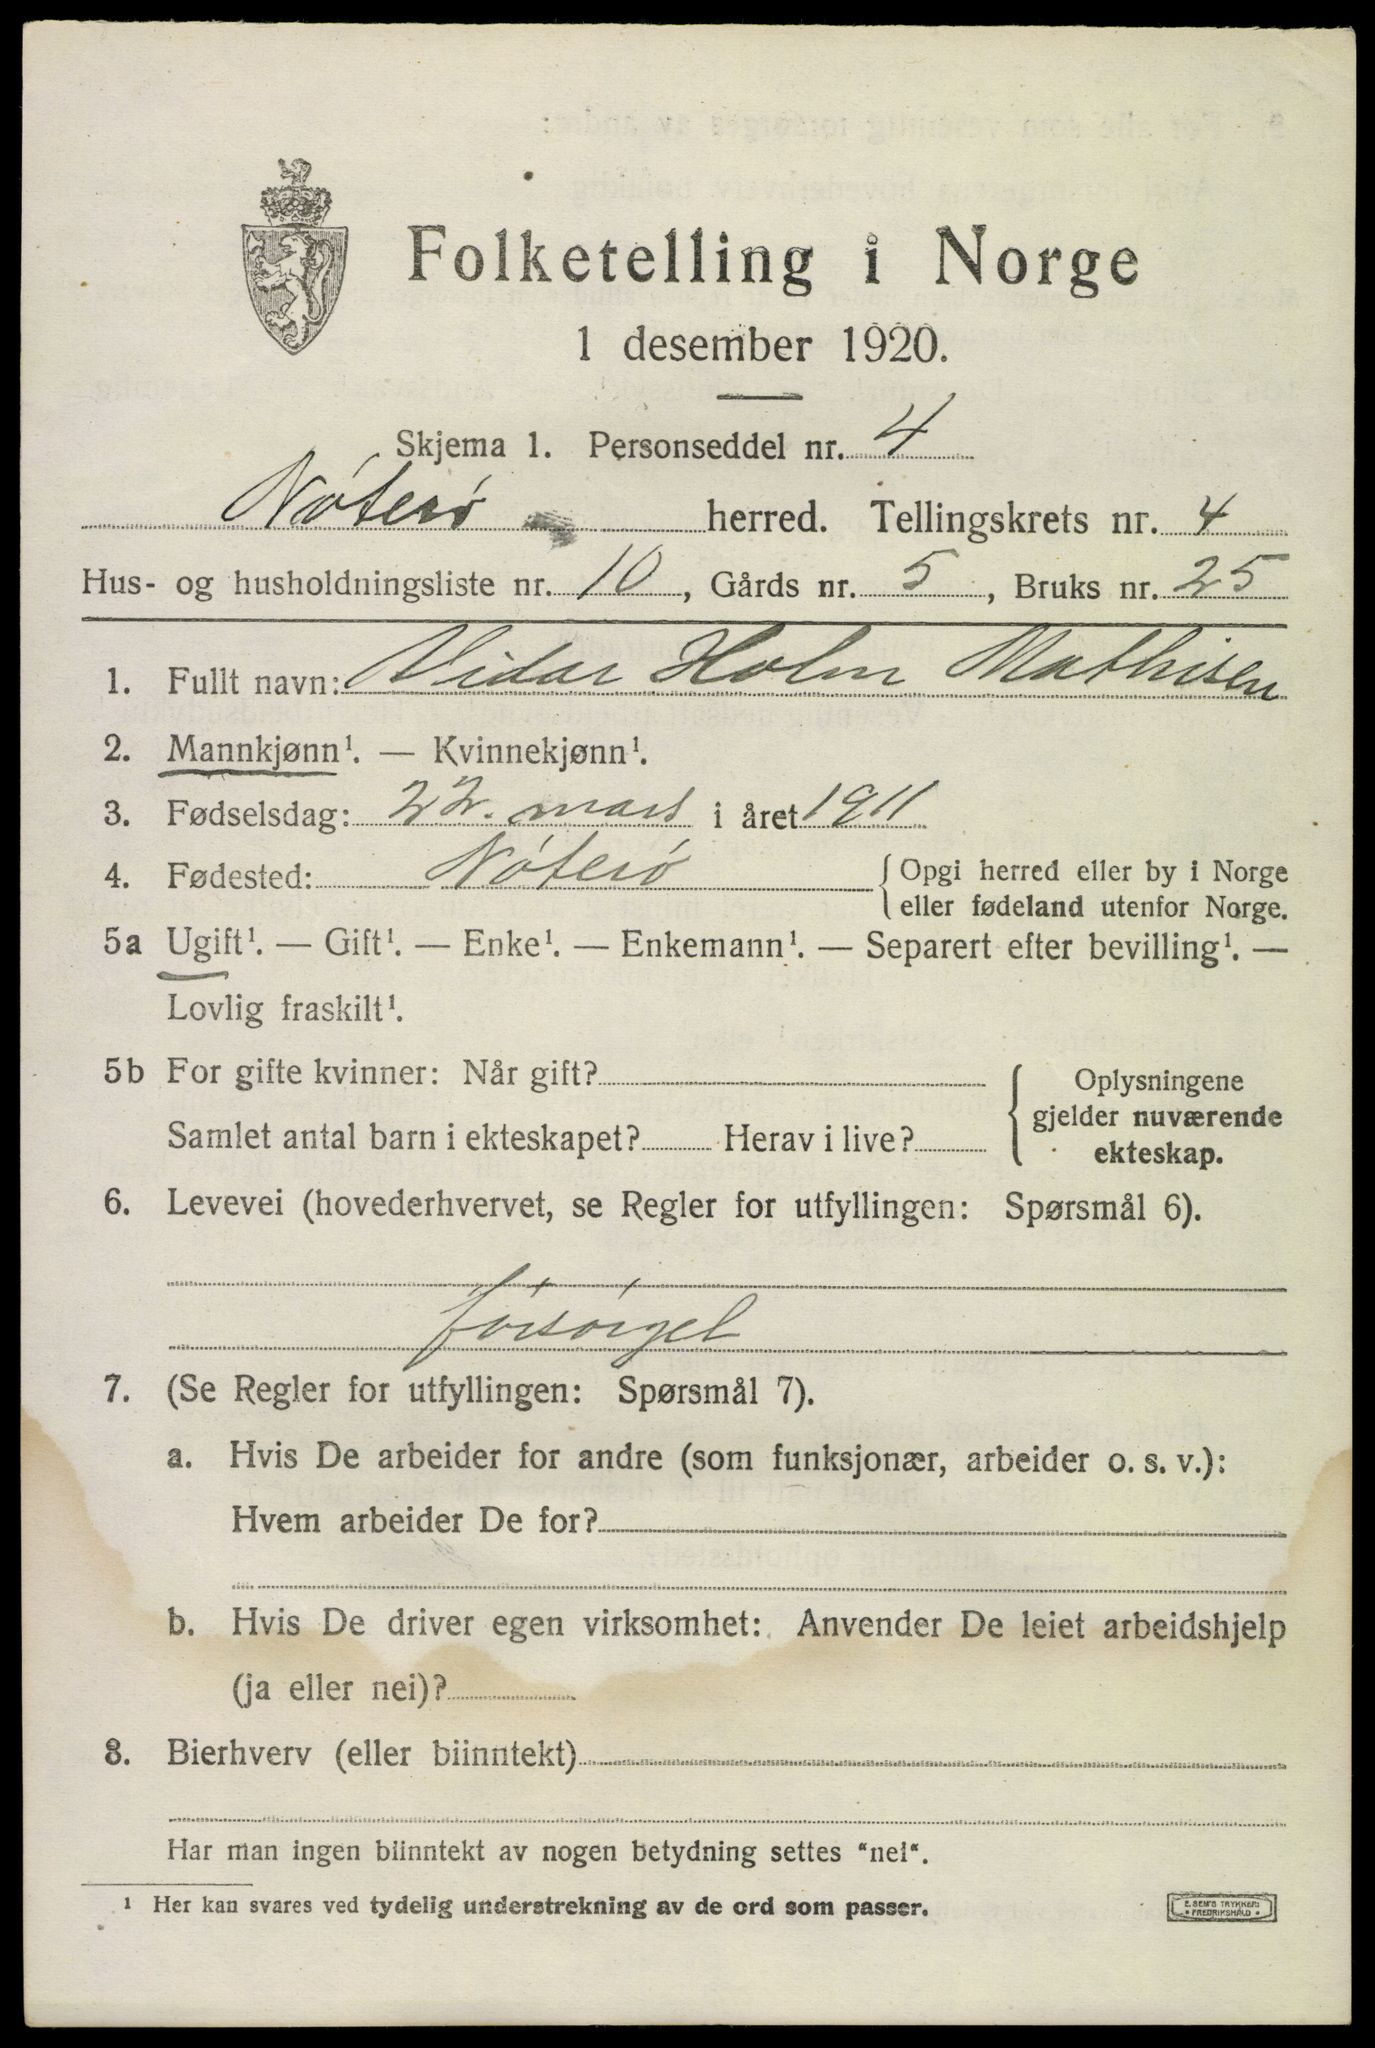 Folketelling i Norge
1 desember 1920.
Skjema 1. Personseddel nr. 4
Nóteró herred. Tellingskrets nr. 4
Hus- og husholdningsliste nr. 10, Gårds nr. 5, Bruks nr. 25
1. Fullt navn: Vidar Holm Mathisen
2. Mannkjønn¹. — Kvinnekjønn¹.
3. Fødselsdag: 22. mars i året 1911
4. Fødested: Nóteró { Opgi herred eller by i Norge
eller fødeland utenfor Norge.
5a Ugift¹. — Gift¹. — Enke¹. — Enkemann¹. — Separert efter bevilling¹. —
Lovlig fraskilt¹.
5b For gifte kvinner: Når gift?
Samlet antal barn i ekteskapet? Herav i live?
{ Oplysningene
gjelder nuværende
ekteskap.
6. Levevei (hovederhvervet, se Regler for utfyllingen: Spørsmål 6).
fórsórget
7. (Se Regler for utfyllingen: Spørsmål 7).
a. Hvis De arbeider for andre (som funksjonær, arbeider o. s. v.):
Hvem arbeider De for?
b. Hvis De driver egen virksomhet: Anvender De leiet arbeidshjelp
(ja eller nei)?
8. Bierhverv (eller biinntekt)
Har man ingen biinntekt av nogen betydning settes "nei".
¹ Her kan svares ved tydelig understrekning av de ord som passer.
E. SEM'S TRYKKERI
FREDRIKSHALD